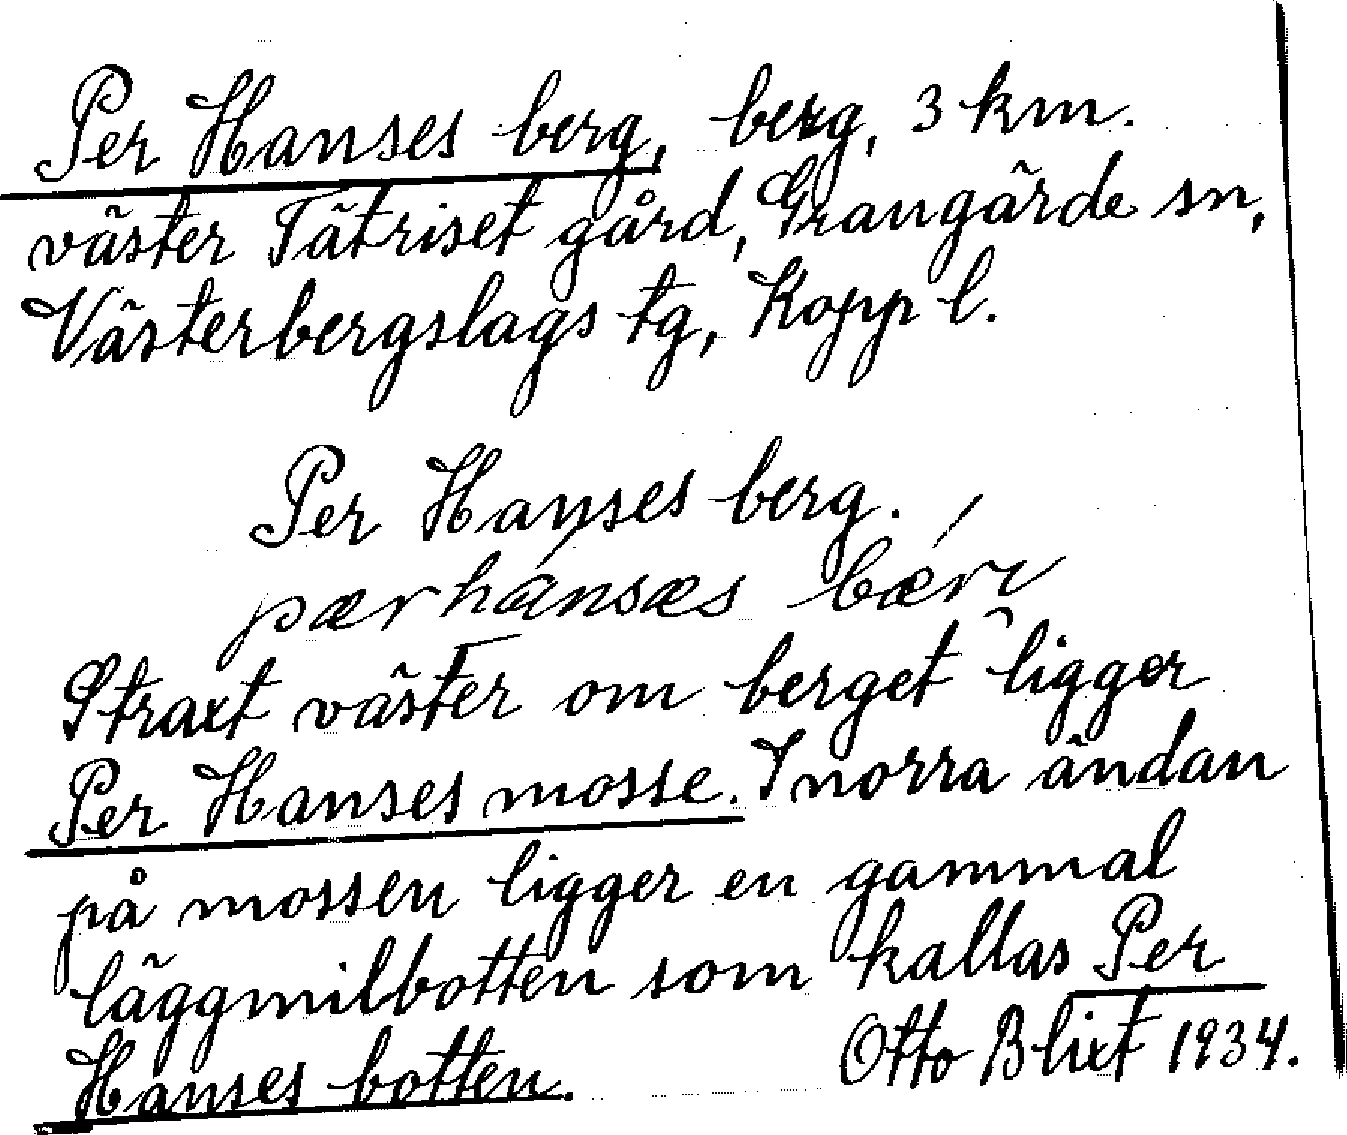 Per Hanses berg, berg, 3 km.
väster Tätriset gård, Grangärde sn,
Västerbergslags tg, Kopp l.
Per Hanses berg.
pærhánsæs bǽri
Straxt väster om berget ligger
Per Hanses mosse. I norra ändan
på mossen ligger en gammal
läggmilbotten som kallas Per
Hanses botten. Otto Blixt 1934.